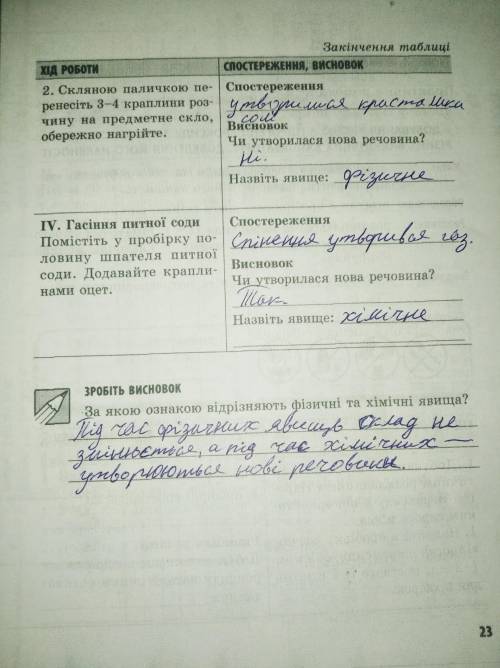 Закінчення таблиці
ХІД РОБОТИ
СПОСТЕРЕЖЕННЯ, ВИСНОВОК
2. Скляною паличкою пе-
ренесіть 3–4 краплини роз-
чину на предметне скло,
обережно нагрійте.
Спостереження
утворилися
сом
Висновок
Чи утворилася нова речовина?
Ні.
Назвіть явище: фізичне
IV. Гасіння питної соди
Помістіть у пробірку по-
ловину шпателя питної
соди. Додавайте крапли-
нами оцет.
Спостереження
Спінення утворився газ.
Висновок
Чи утворилася нова речовина?
Так.
Назвіть явище: хімічне
ЗРОБІТЬ ВИСНОВОК
За якою ознакою відрізняють фізичні та хімічні явища?
Під час фізичних явищ склад не
змінюється, а під час хімічних —
утворюються нові речовини.
23